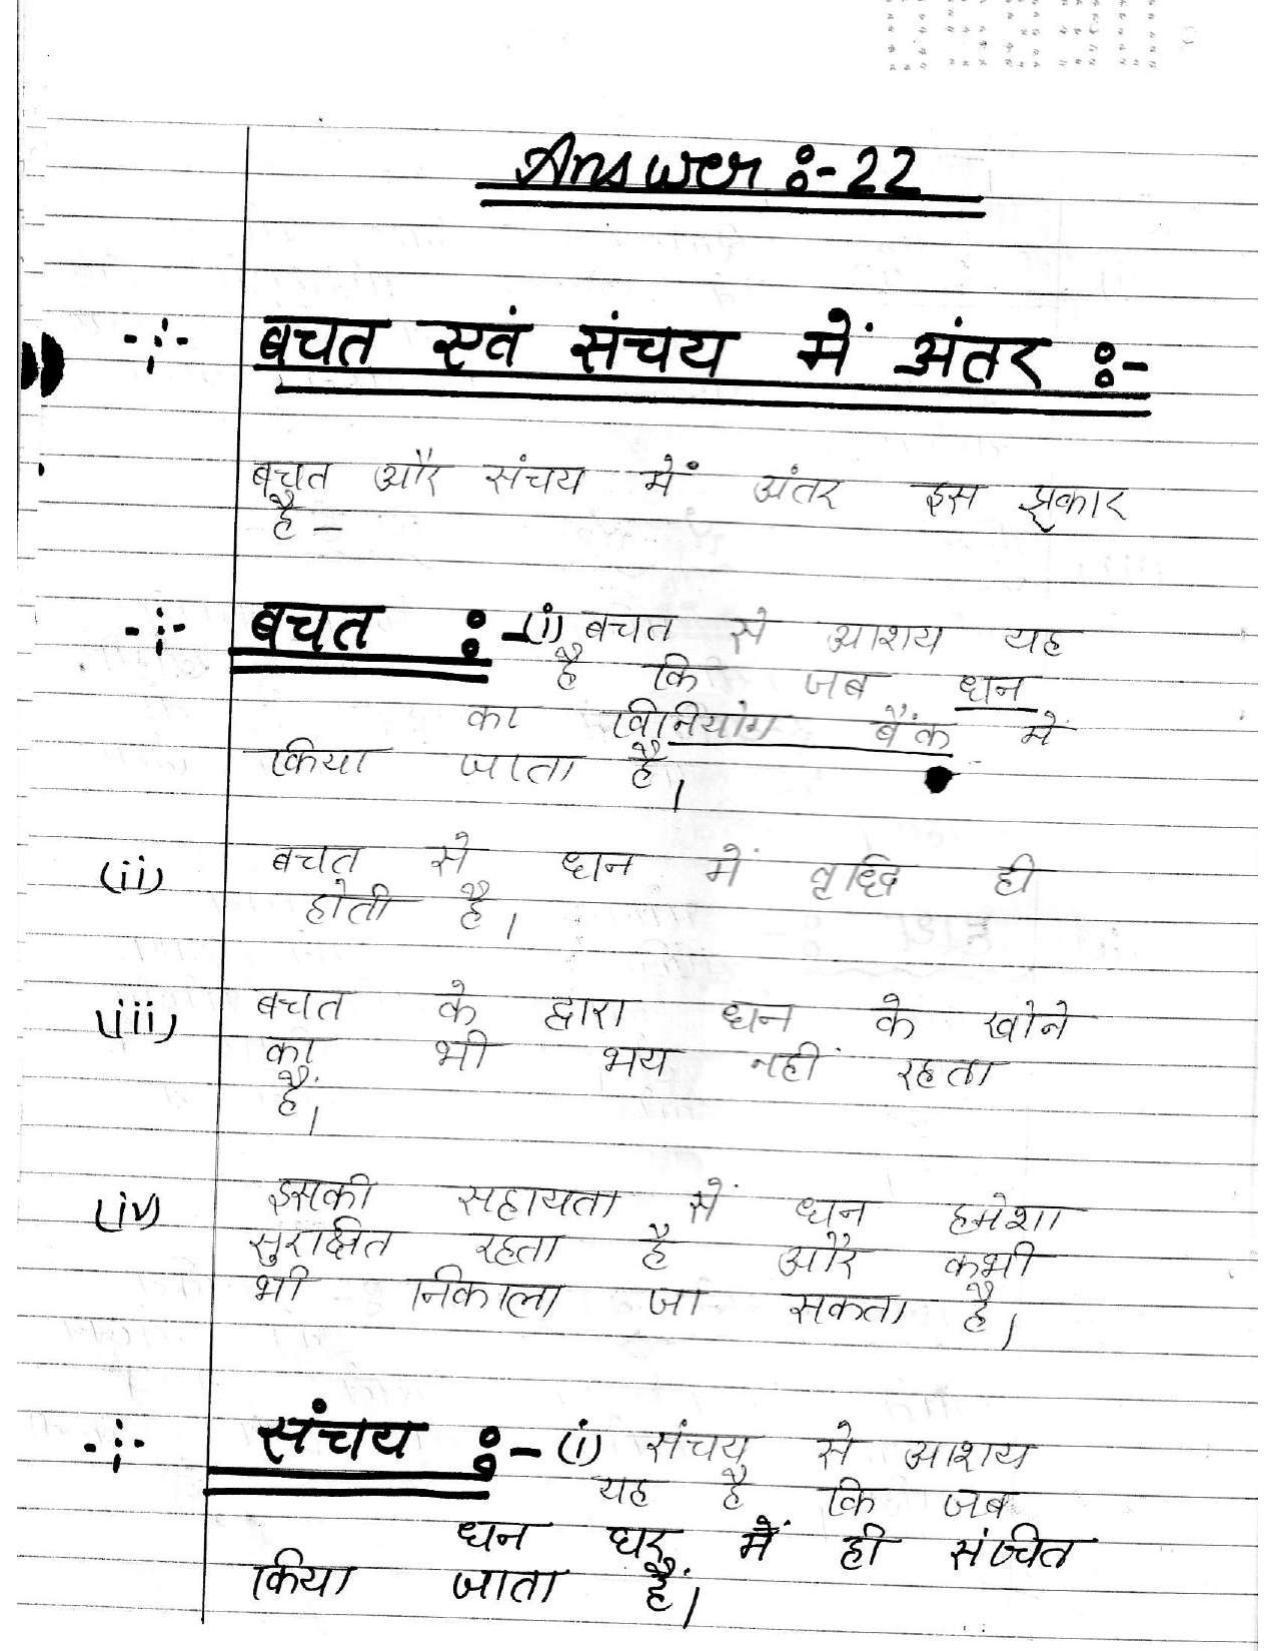 Answer :- 22
बचत एवं संचय में अंतर :-
बचत और संचय में अंतर इस प्रकार
है -
बचत :- (i) बचत से आशय यह
है कि जब धन
का विनियोग बैंक में
किया जाता है।
(ii) बचत से धन में वृद्धि ही
होती है।
(iii) बचत के द्वारा धन के खोने
का भी भय नहीं रहता
है।
(iv) इसकी सहायता से धन हमेशा
सुरक्षित रहता है और कभी
भी निकाला जा सकता है।
संचय :- (i) संचय से आशय
यह है कि जब
धन घर में ही संचित
किया जाता है।